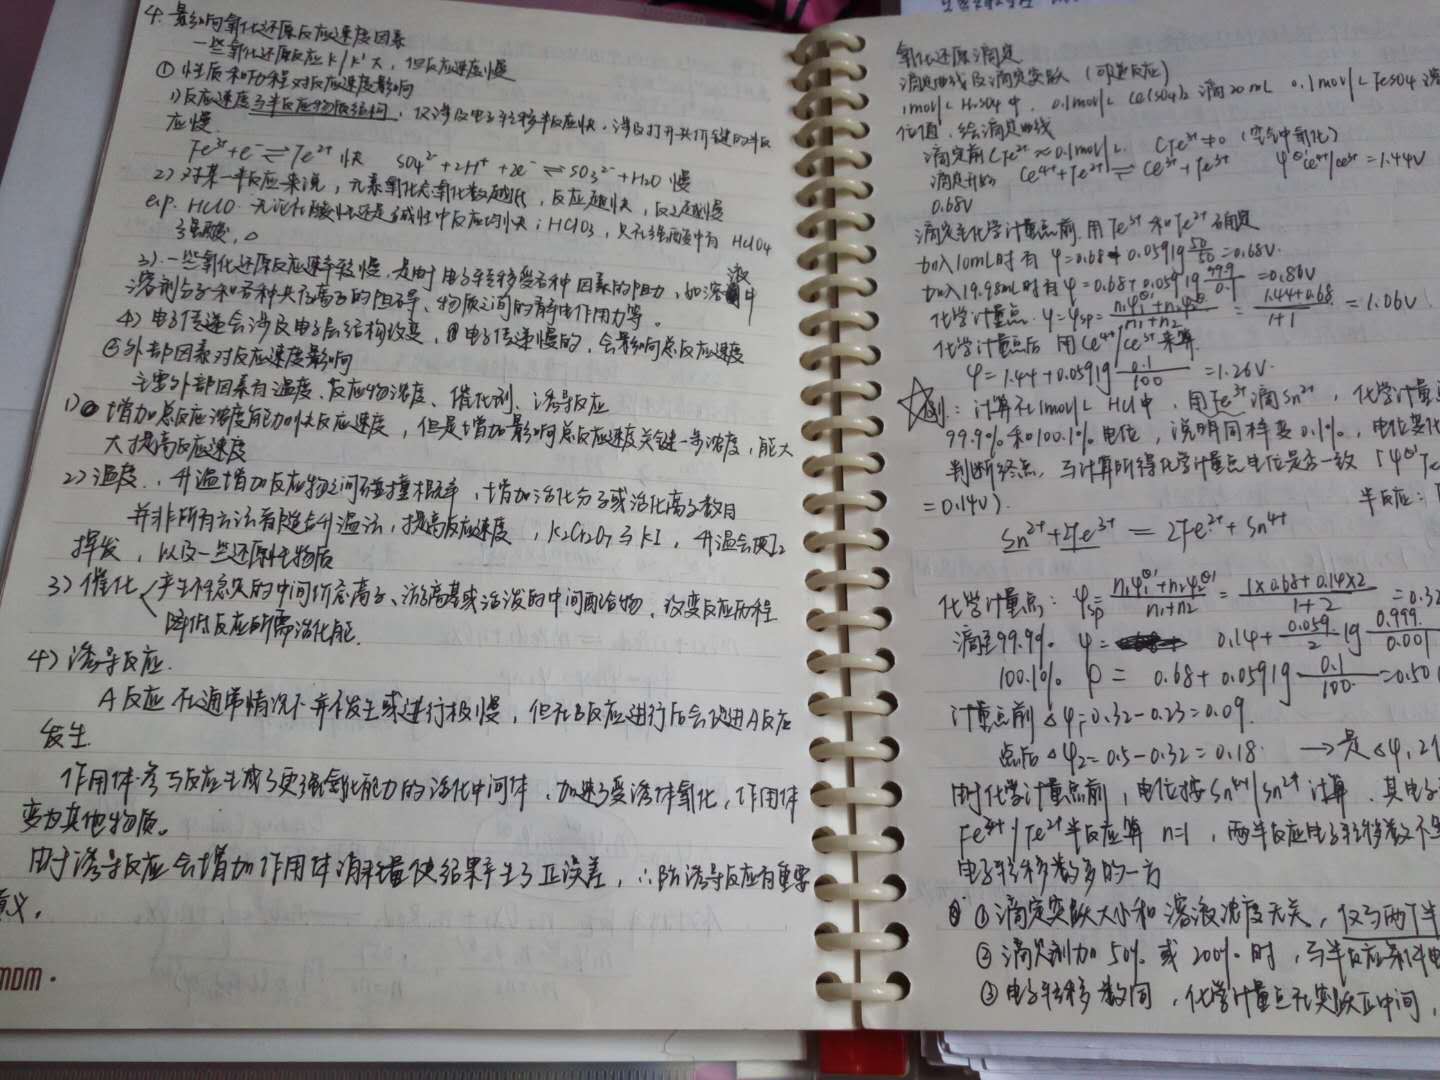 4. 影响氧化还原反应速度因素
一些氧化还原反应 K/K' 大，但反应速度慢
① 性质和历程对反应速度影响
1) 反应速度与半反应物质结构，仅涉及电子转移半反应快，涉及打开共价键的半反
应慢
Fe³⁺+e⁻⇌Fe²⁺ 快 SO₄²⁻+2H⁺+2e⁻⇌SO₃²⁻+H₂O 慢
2) 对某一半反应来说，元素氧化态氧化数越低，反应越快，反之越慢
e.p. HClO 无论在酸性还是碱性中反应均快；HClO₃，只在强酸中有 HClO₄
强酸，△
3) 一些氧化还原反应速率较慢，是由于电子转移受各种因素的阻力，如溶液中
溶剂分子和各种共存离子的阻碍、物质之间的静电作用力等。
4) 电子传递会涉及电子层结构改变，电子传递慢的，会影响总反应速度
② 外部因素对反应速度影响
主要外部因素有温度、反应物浓度、催化剂、诱导反应
1) 增加总反应浓度能加快反应速度，但是增加影响总反应速度关键一步浓度，能大
大提高反应速度
2) 温度．升温增加反应物之间碰撞概率，增加活化分子或活化离子数目
并非所有方法都能去升温法，提高反应速度，K₂Cr₂O₇与KI，升温会使I₂
挥发，以及一些还原性物质
3) 催化 产生不稳定的中间价态离子、游离基或活泼的中间配合物，改变反应历程
降低反应所需活化能．
4) 诱导反应．
A反应在通常情况下并不发生或进行极慢，但在B反应进行后会促进A反应
发生．
作用体参与反应生成了更强氧化能力的活化中间体，加速了受诱体氧化，作用体
变为其他物质。
由于诱导反应会增加作用体消耗量使结果产生了正误差，∴防诱导反应有重要
意义．
MDM·
氧化还原滴定
滴定曲线及滴定突跃（可逆反应）
1mol/L H₂SO₄中 0.1mol/L Ce(SO₄)₂ 滴20mL 0.1mol/L FeSO₄溶
位值，绘滴定曲线
滴定前 CFe²⁺≈0.1mol/L CFe³⁺≠0（空气中氧化）
滴定开始 Ce⁴⁺+Fe²⁺⇌Ce³⁺+Fe³⁺ φ⊖'Ce⁴⁺/Ce³⁺=1.44V
0.68V
滴定至化学计量点前，用Fe³⁺和Fe²⁺确定
加入10mL时有 φ=0.68+0.059lg50/50=0.68V．
加入19.98mL时有 φ=0.68+0.059lg99.9/0.1=0.86V
化学计量点．φ=φsp=(n₁φ₁⊖'+n₂φ₂⊖')/(n₁+n₂)=(1.44+0.68)/(1+1)=1.06V
化学计量点后 用Ce⁴⁺/Ce³⁺来算
φ=1.44+0.059lg0.1/100=1.26V．
☆例：计算在1mol/L HCl中，用Fe³⁺滴Sn²⁺，化学计量
99.9%和100.1%电位，说明同样变0.1%，电位变化
判断终点，与计算所得化学计量点电位是否一致（φ⊖'Fe
=0.14V）． 半反应：
Sn²⁺+2Fe³⁺=2Fe²⁺+Sn⁴⁺
化学计量点：φsp=(n₁φ₁⊖'+n₂φ₂⊖')/(n₁+n₂)=(1×0.68+0.14×2)/(1+2)=0.32
滴至99.9% φ= 0.14+0.059/2 lg0.999/0.001
100.1% φ= 0.68+0.059lg0.1/100=0.50
计量点前 △φ₁=0.32-0.23=0.09．
点后 △φ₂=0.5-0.32=0.18． →是△φ₁2
由于化学计量点前，电位按Sn⁴⁺/Sn²⁺计算，其电子
Fe³⁺/Fe²⁺半反应算 n=1，两半反应电子转移数不
电子转移数多的一方
① 滴定突跃大小和溶液浓度无关，仅与两个半
② 滴定剂加50%或200%时，与半反应条件电
③ 电子转移数同，化学计量点在突跃正中间，